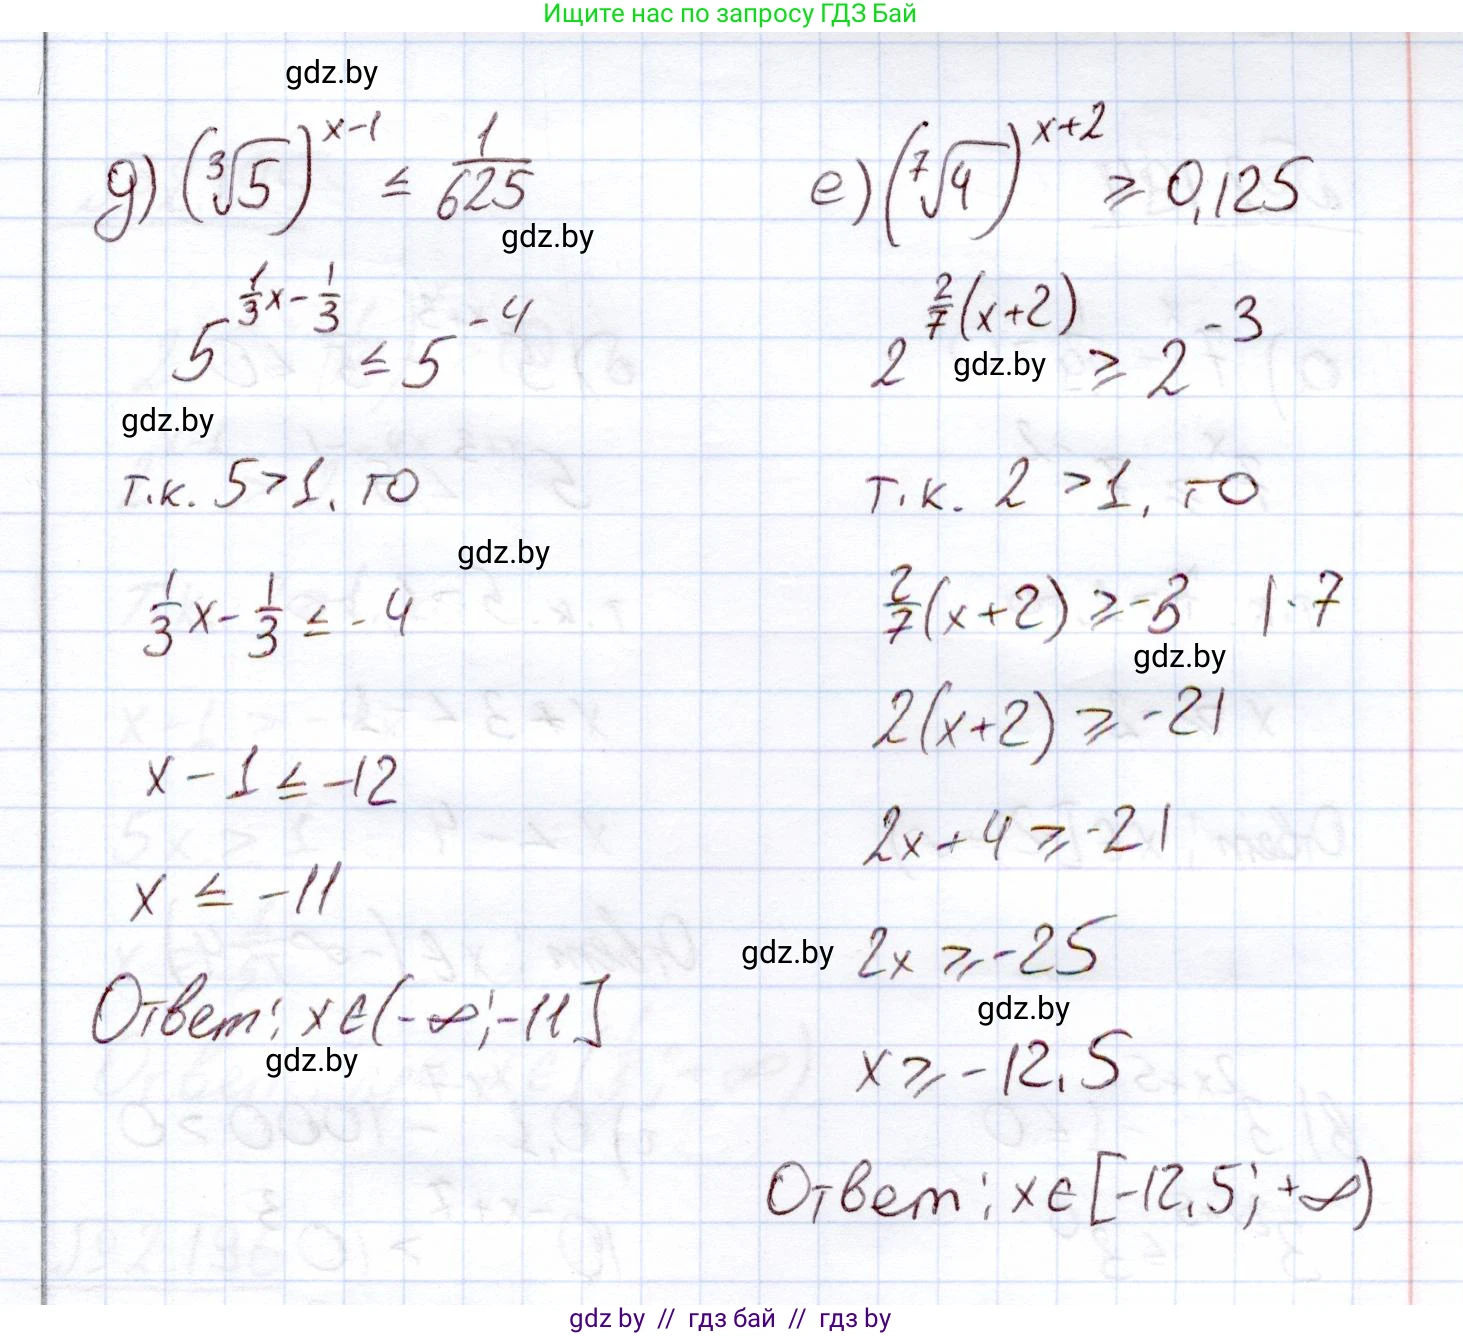 Ищите нас по запросу ГДЗ Бай
gdz.by
д) (∛5)^(x-1) ≤ 1/625
gdz.by
5^(1/3x - 1/3) ≤ 5^(-4)
gdz.by
т.к. 5 > 1, то
gdz.by
1/3x - 1/3 ≤ -4
x - 1 ≤ -12
x ≤ -11
Ответ: x ∈ (-∞; -11]
gdz.by
е) (⁷√4)^(x+2) ≥ 0,125
2^(2/7(x+2)) ≥ 2^(-3)
gdz.by
т.к. 2 > 1, то
2/7(x+2) ≥ -3 | · 7
gdz.by
2(x+2) ≥ -21
2x + 4 ≥ -21
gdz.by 2x ≥ -25
gdz.by
x ≥ -12,5
Ответ: x ∈ [-12,5; +∞)
gdz by // гдз бай // гдз by